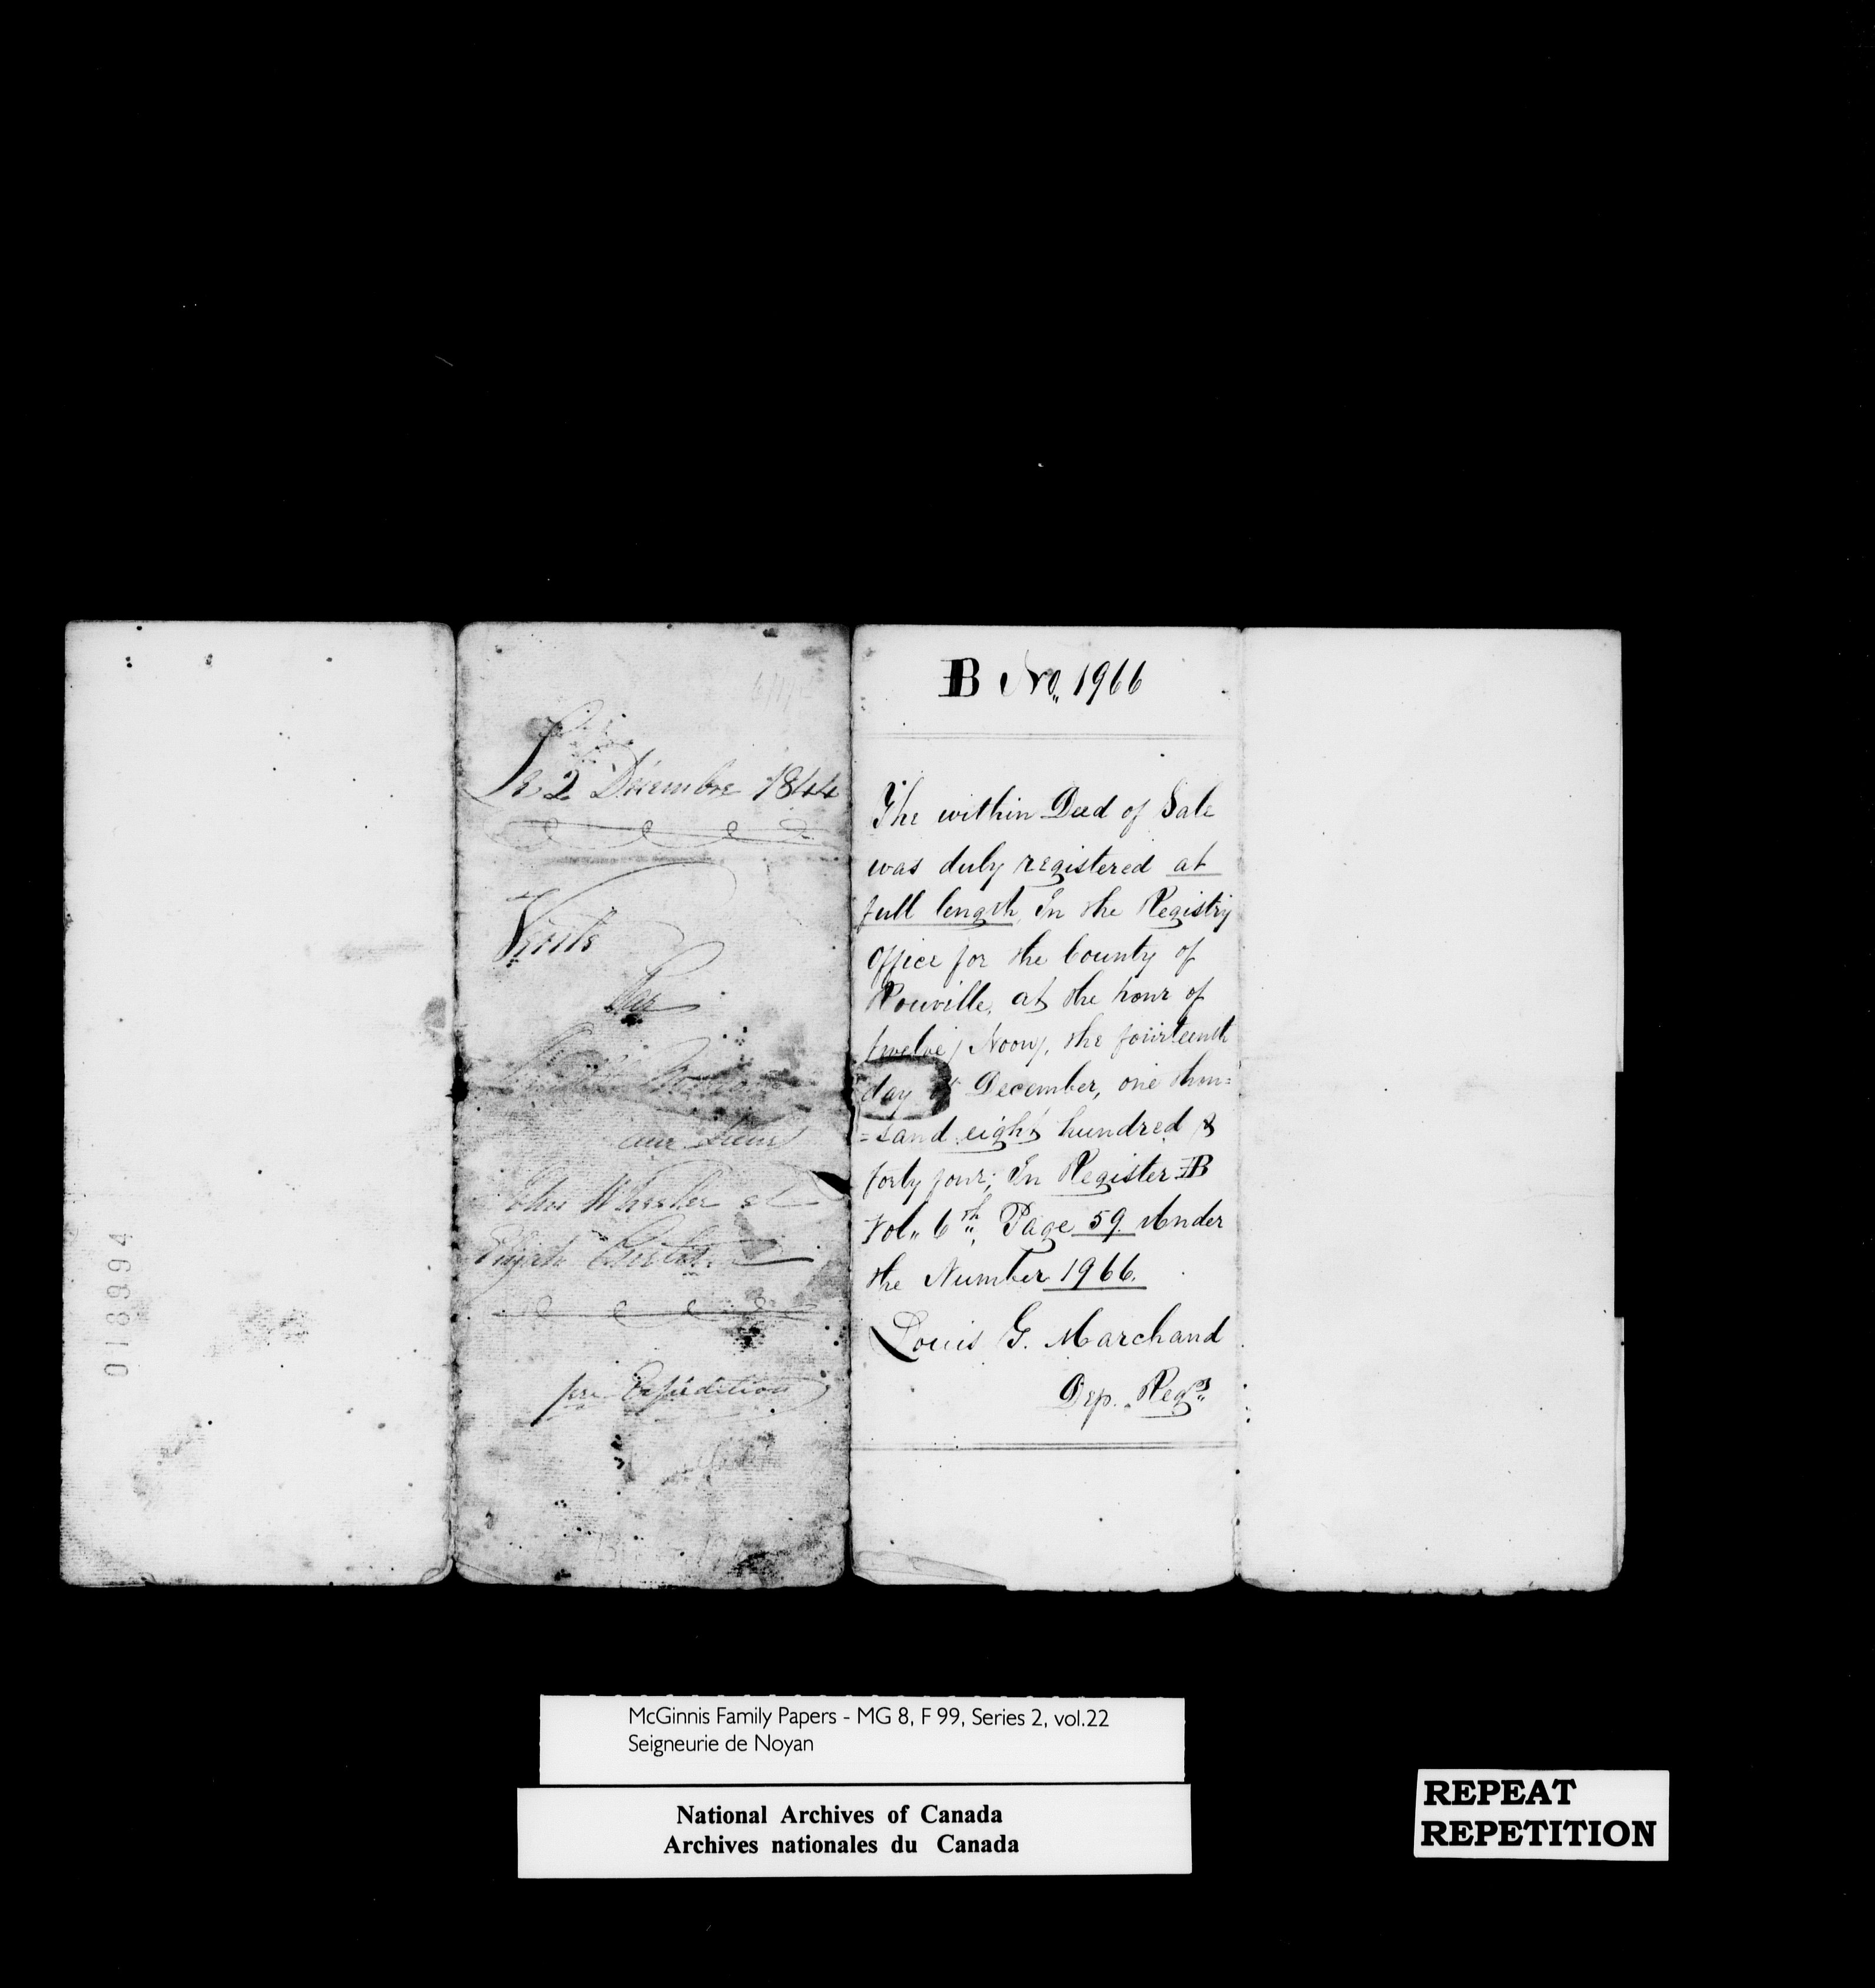 018994
Le 2 Décembre 1844
Vente
Par
aux Sieurs
John Wheeler et
Elijah
pre Expédition
B No. 1966
The within Deed of Sale
was duly registered at
full length, In the Registry
Office for the County of
Rouville, at the hour of
twelve, Noon, the fourteenth
day of December, one thou=
=sand eight hundred &
forty four; In Register B
Vol. 6th, Page 59. Under
the Number 1966.
Louis G. Marchand
Dep. Regr.
McGinnis Family Papers - MG 8, F 99, Series 2, vol.22
Seigneurie de Noyan
National Archives of Canada
Archives nationales du Canada
REPEAT
REPETITION